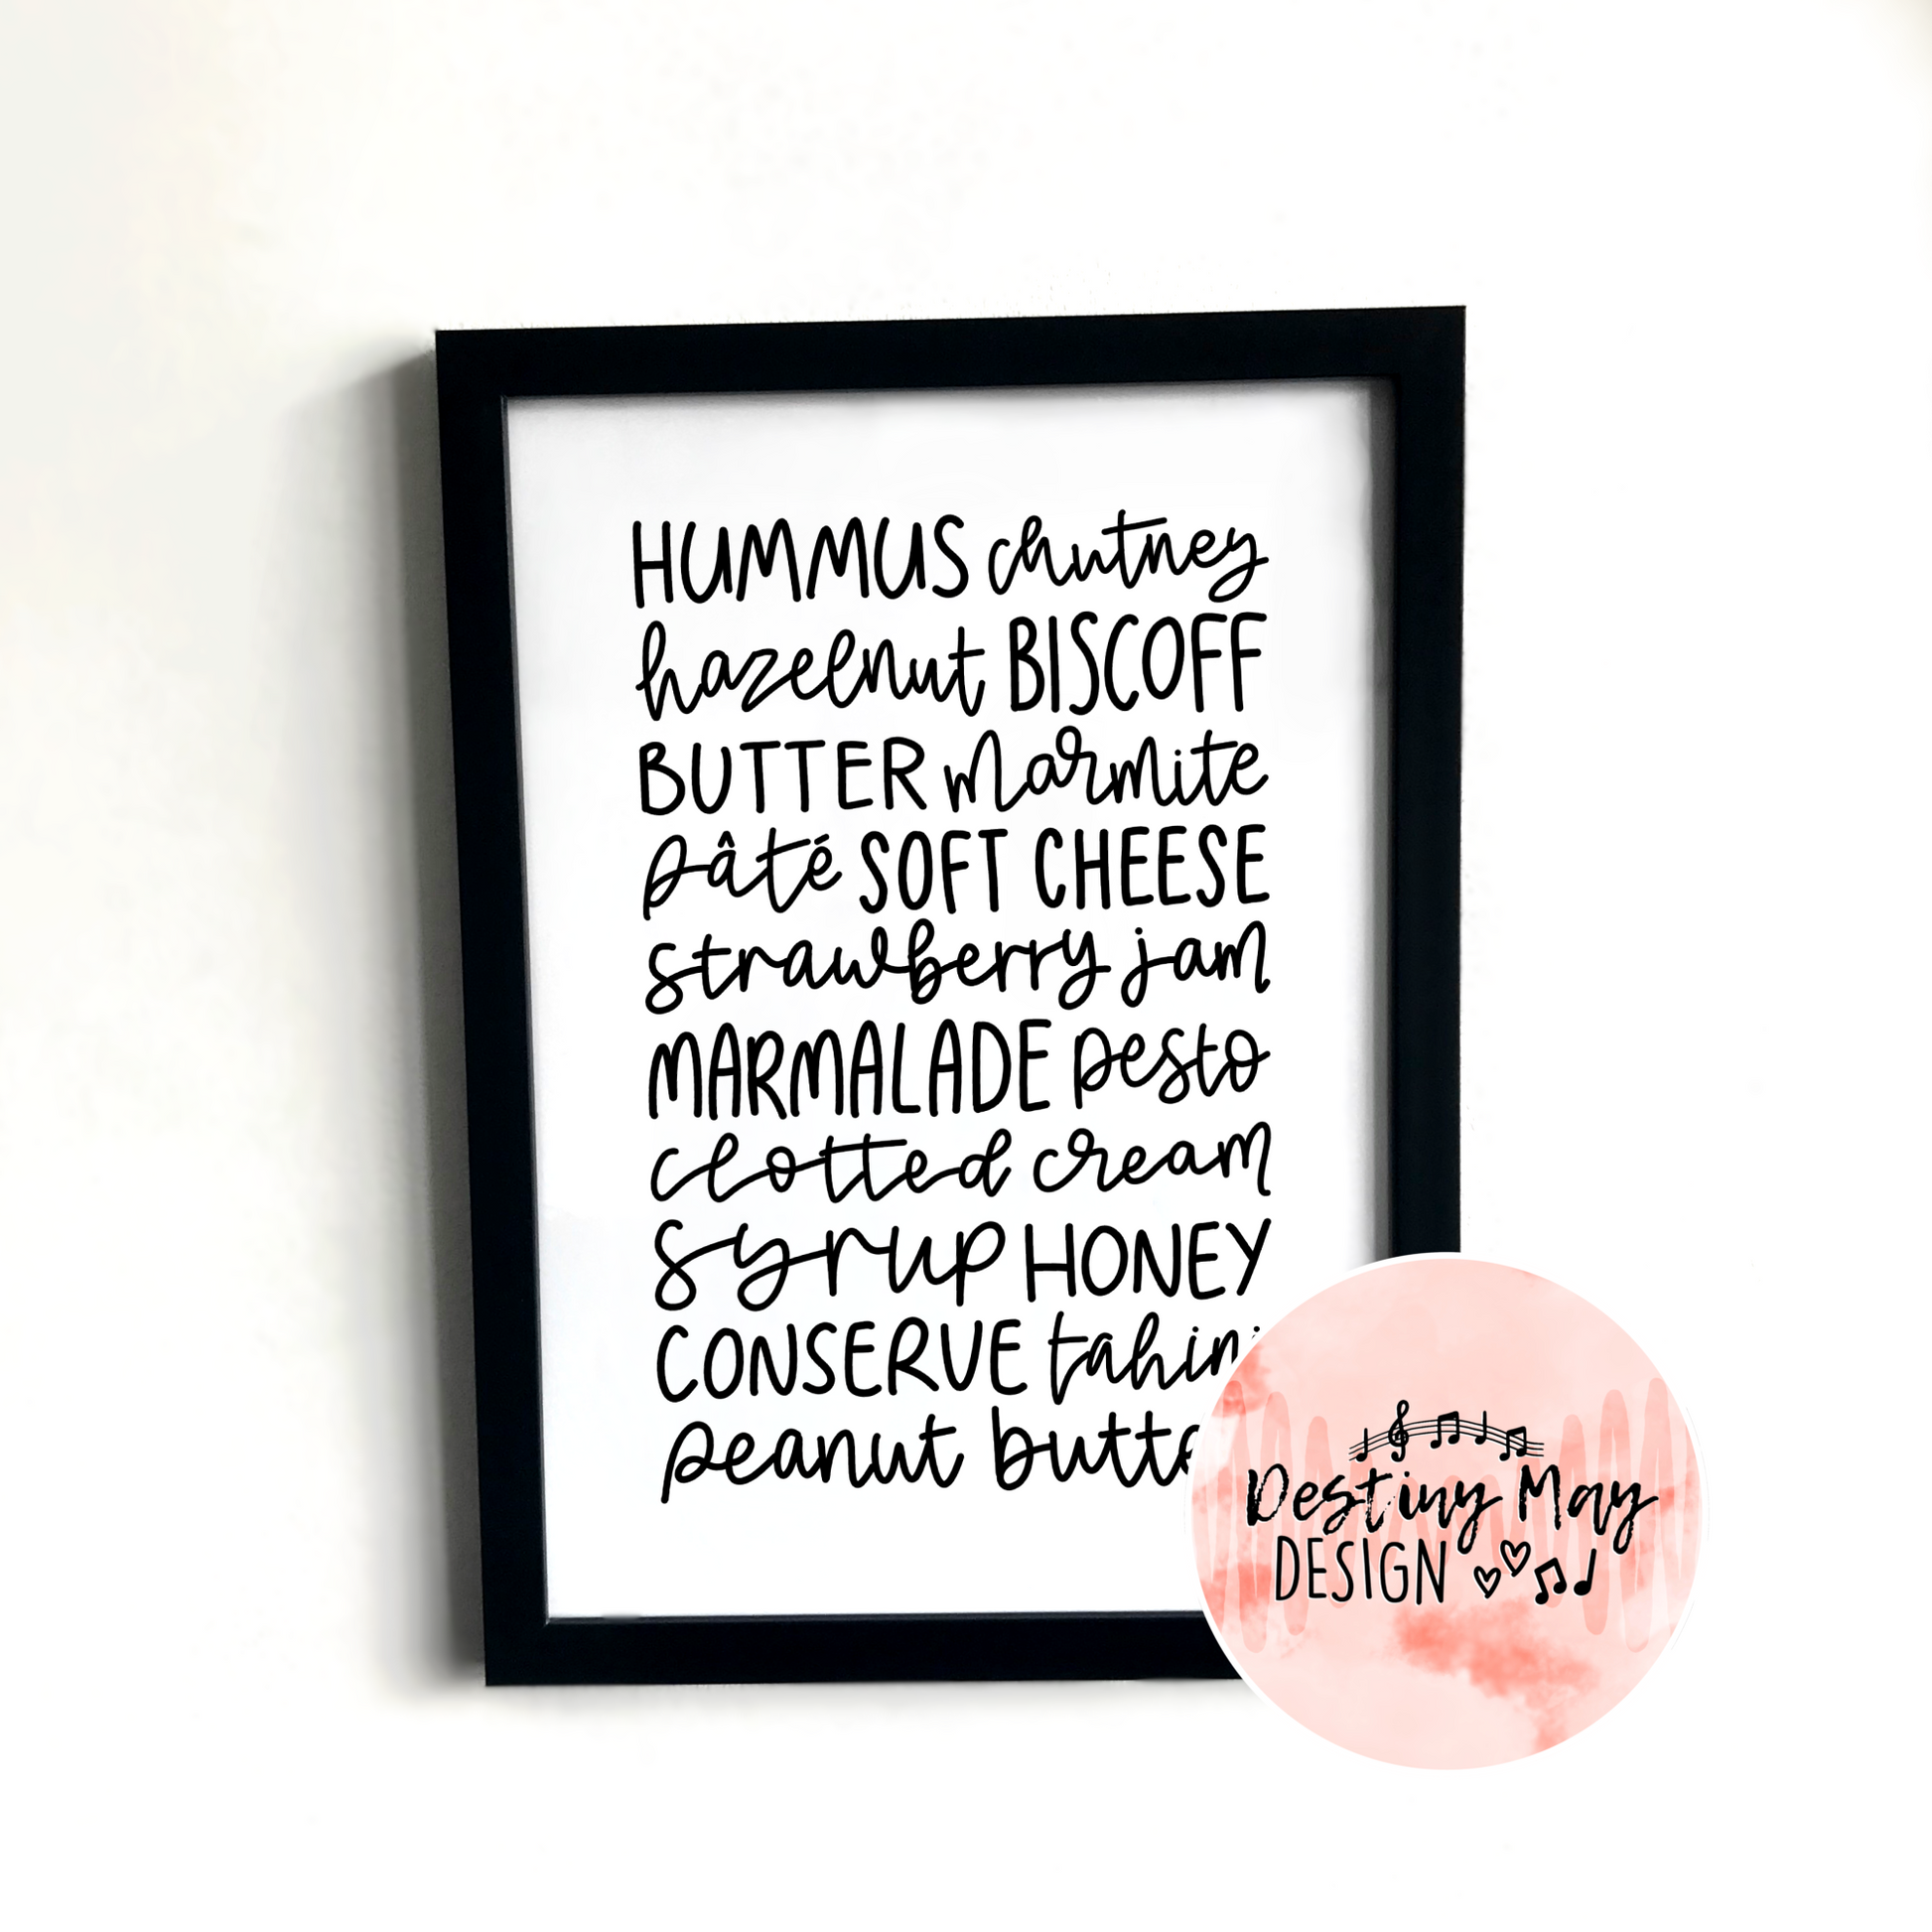 HUMMUS chutney
hazelnut BISCOFF
BUTTER marmite
pâté SOFT CHEESE
strawberry jam
MARMALADE pesto
clotted cream
syrup HONEY
CONSERVE
peanut
Destiny May
DESIGN